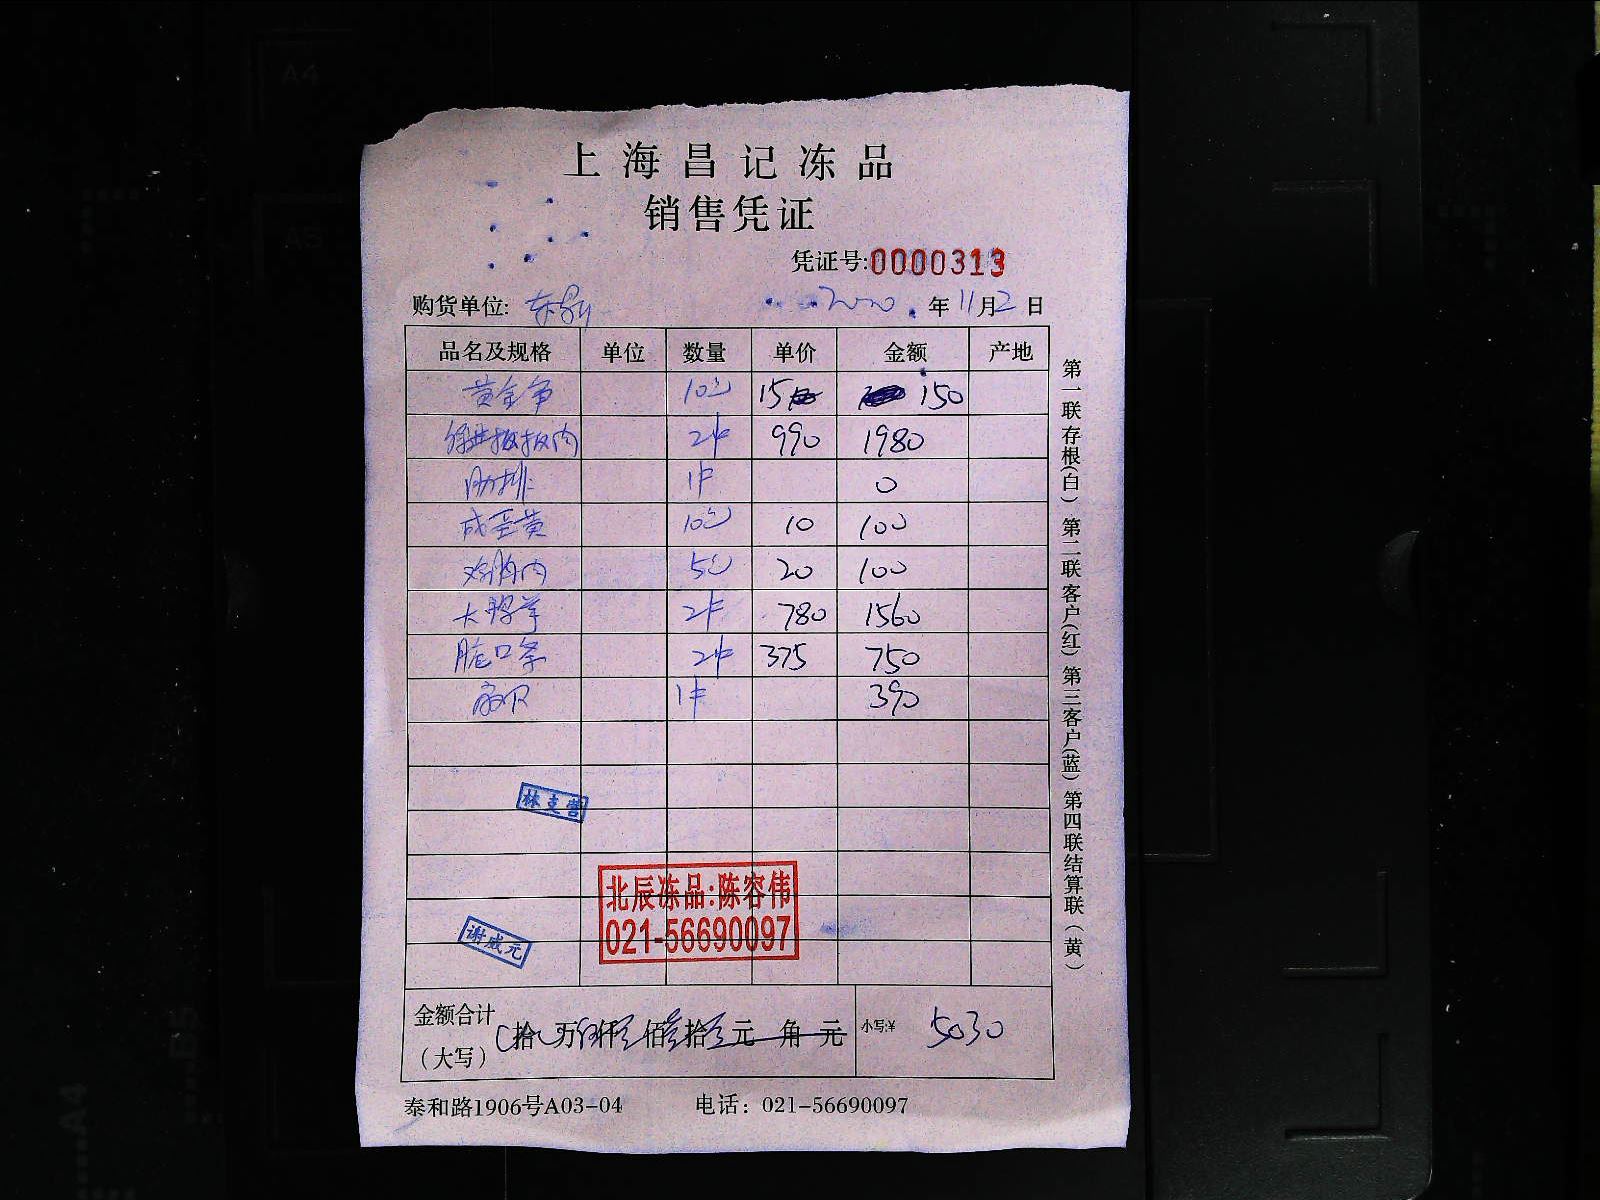 上海昌记冻品
销售凭证
凭证号:0000313
购货单位: 2020年11月2日
品名及规格 单位 数量 单价 金额 产地
10包 15 150
2件 990 1980
肋排 1件 0
咸蛋黄 10包 10 100
鸡胸肉 5包 20 100
2件 780 1560
口条 2件 375 750
扇贝 1件 390
林支营
北辰冻品:陈容伟
021-56690097
谢威元
金额合计
(大写) 拾 万 仟 佰 拾 元 角 元 小写:¥ 5030
泰和路1906号A03-04 电话: 021-56690097
第一联存根(白) 第二联客户(红) 第三客户(蓝) 第四联结算联(黄)
A4
A5
B5
A4